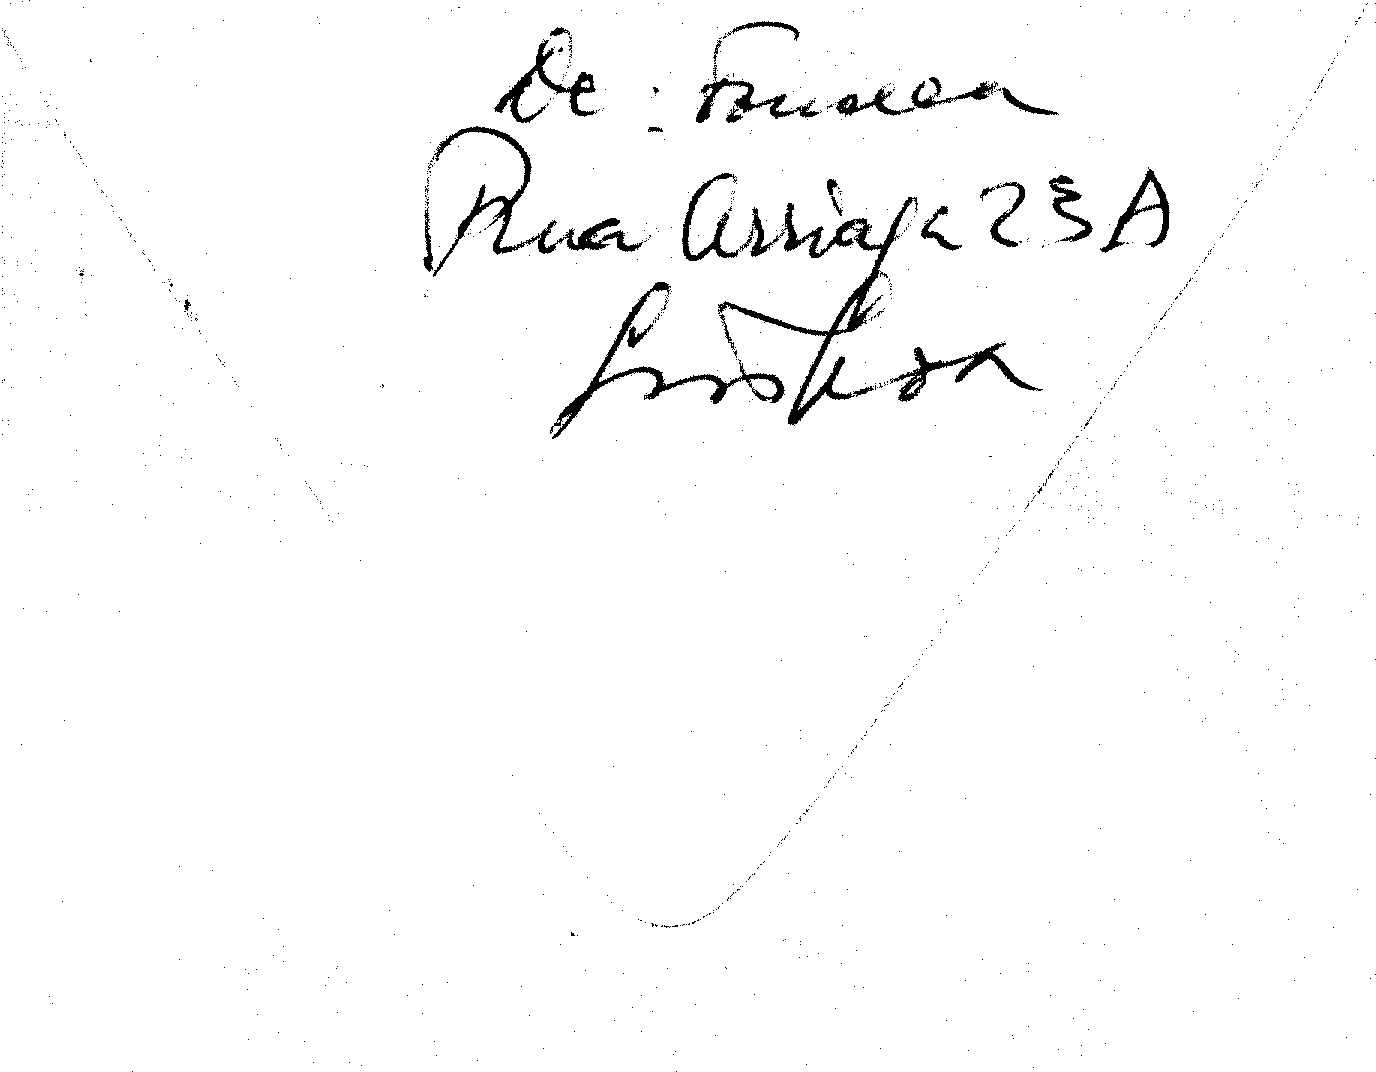 De: Fonseca
Rua Arriaga 23 A
Lisboa